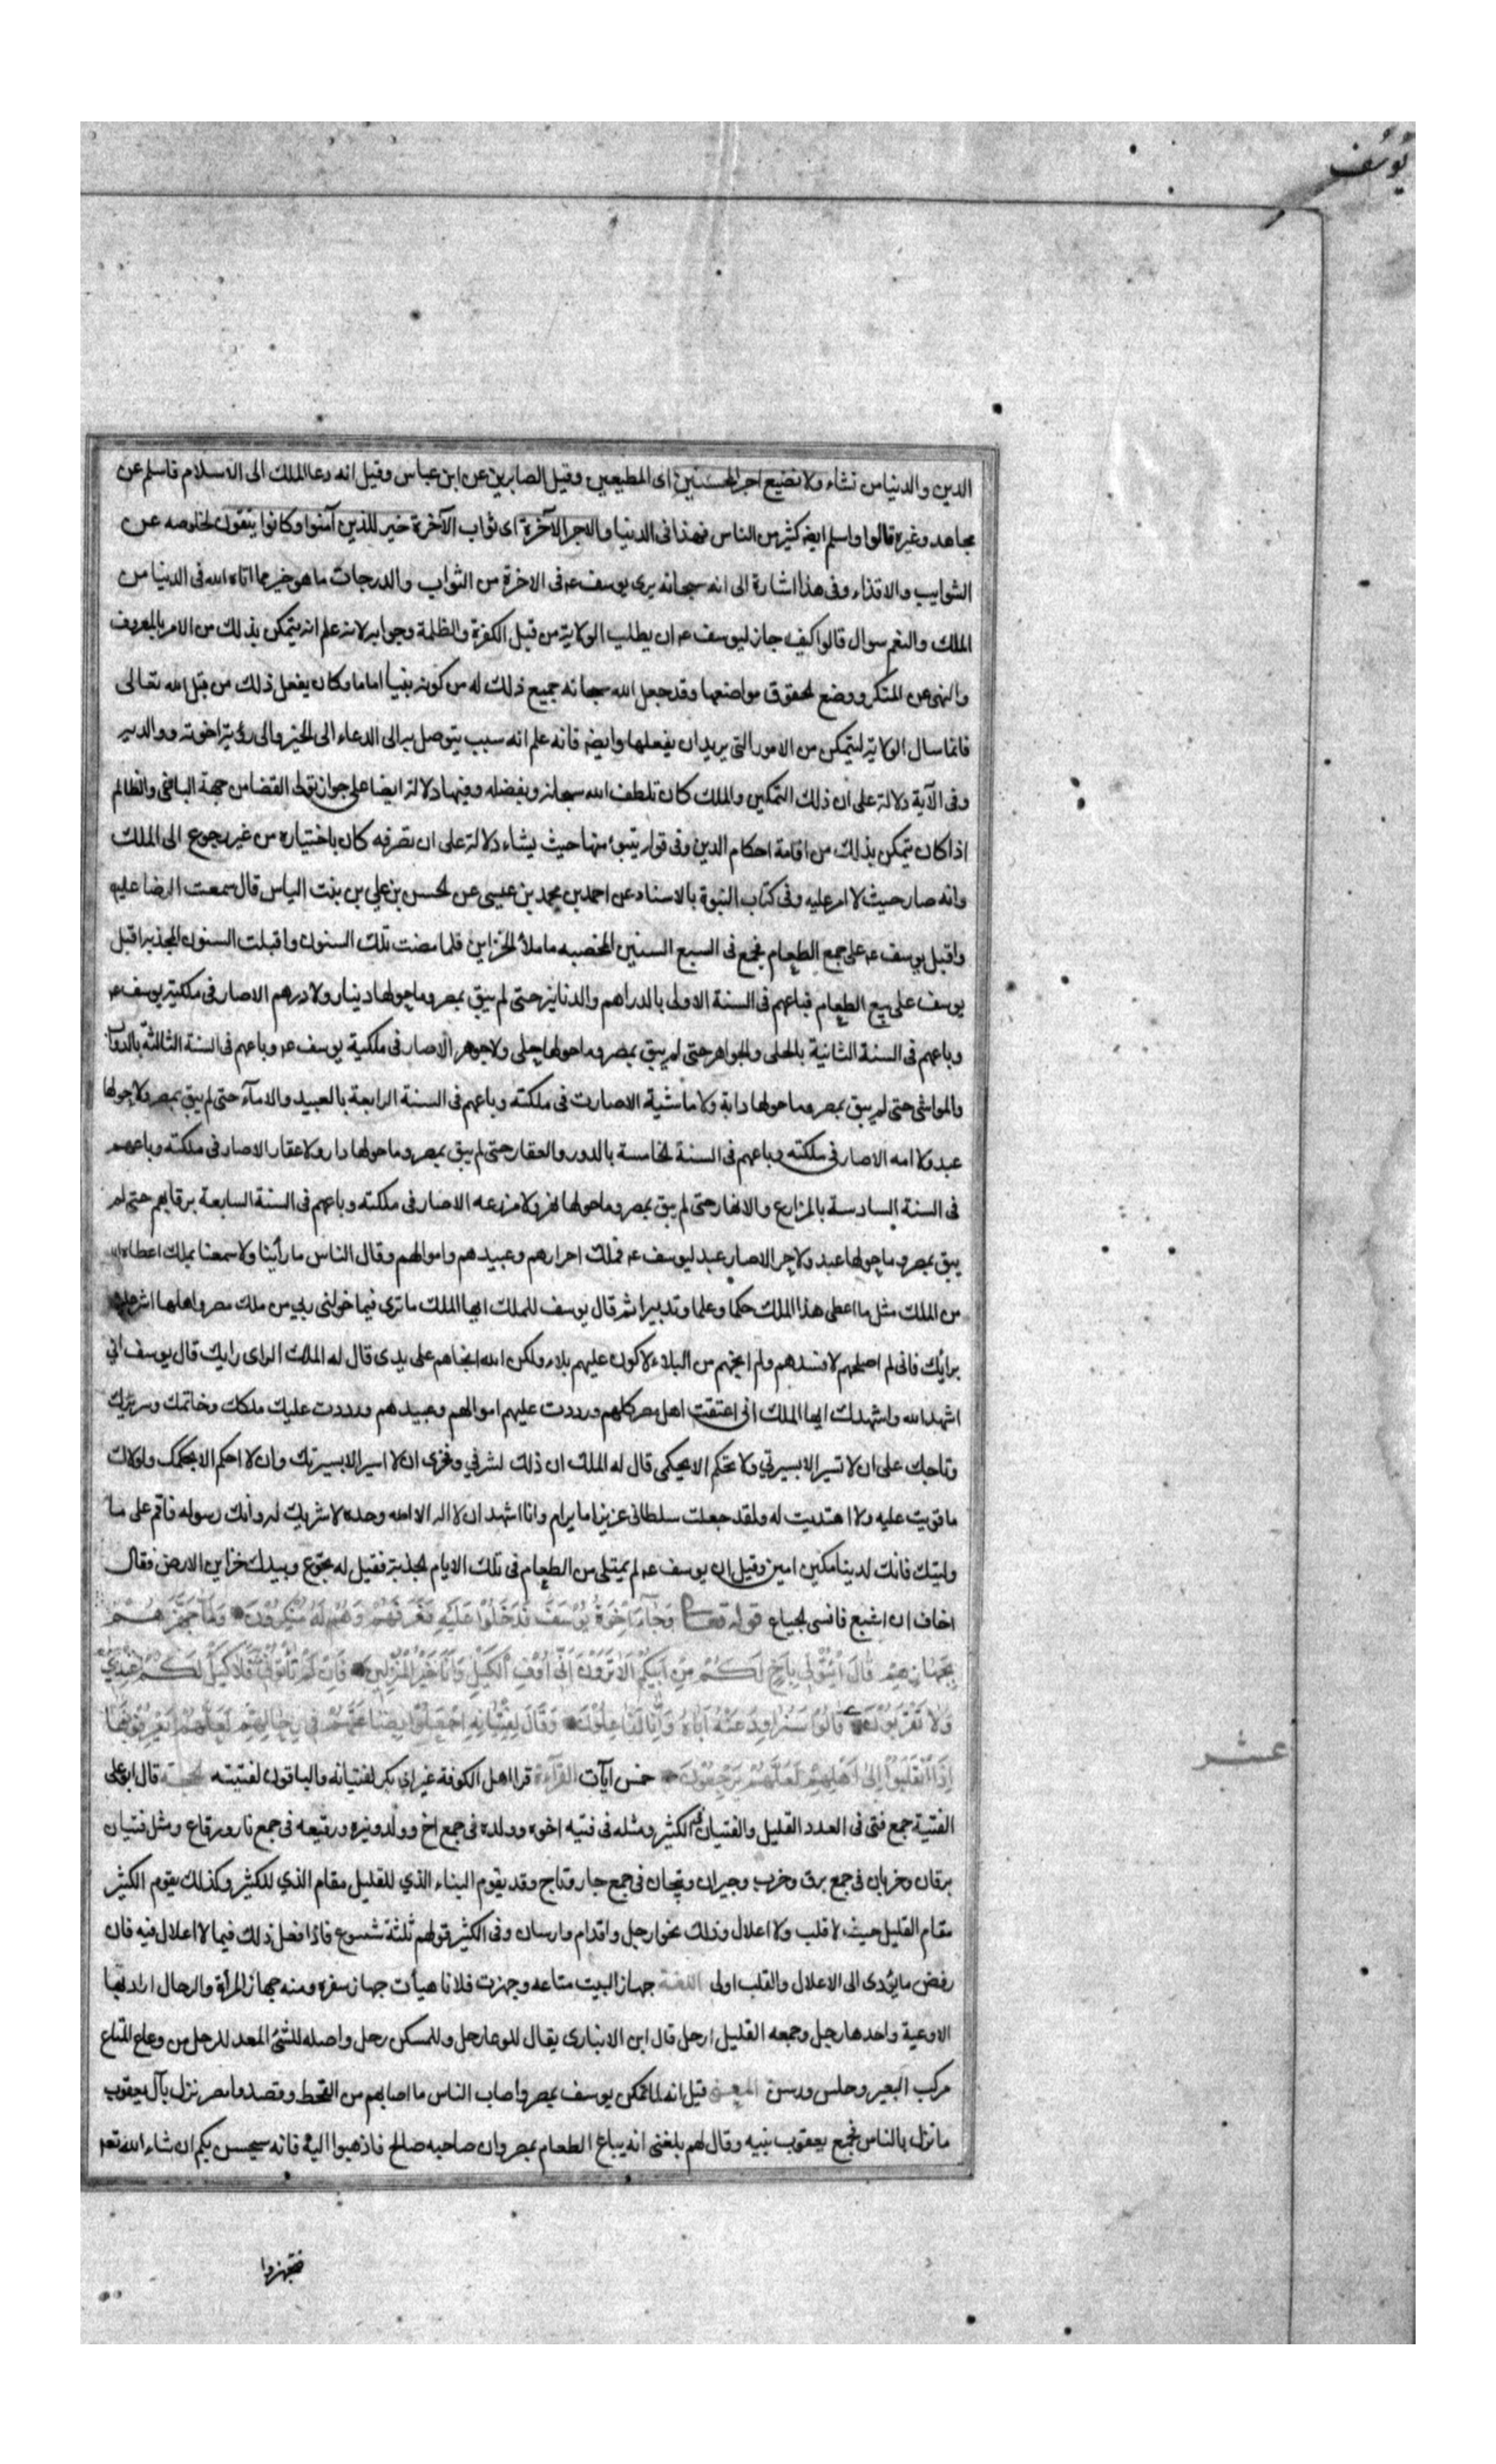 يوسف
الدين والدنيا من نشاء ولا نضيع اجر المحسنين اى المطيعين وقيل الصابرين عن ابن عباس وقيل انه دعا الملك الى الاسلام فاسلم عن
مجاهد وغيره قالوا واسلم ايضا كثير من الناس فهذا فى الدنيا والاجر الآخرة اى ثواب الآخرة خير للذين آمنوا وكانوا يتقون لخلوصه عن
الشوايب والاقذاء وفى هذا اشارة الى انه سبحانه يرى يوسف عه فى الاخرة من الثواب والدرجات ما هو خير مما اتاه الله فى الدنيا من
الملك والنعم سوال قالوا كيف جاز ليوسف عه ان يطلب الولاية من قبل الكفرة والظلمة وجوابه لانه علم انه يتمكن بذلك من الامر بالمعروف
والنهى عن المنكر ووضع الحقوق مواضعها وقد جعل الله سبحانه جميع ذلك له من كونه نبيا اماما وكان يفعل ذلك من قبل الله تعالى
فانما سال الولاية ليتمكن من الامور التى يريد ان يفعلها وايضا فانه علم انه سبب يتوصل به الى الدعاء الى الخير والى رؤية اخوته ووالديه
وفى الآية دلالة على ان ذلك التمكين والملك كان بلطف الله سبحانه وبفضله وفيها دلالة ايضا على جواز تولى القضا من جهة الباغى والظالم
اذا كان يتمكن بذلك من اقامة احكام الدين وفى قوله يتبوء منها حيث يشاء دلالة على ان تصرفه كان باختياره من غير رجوع الى الملك
وانه صار حيث لا امر عليه وفى كتاب النبوة بالاسناد عن احمد بن محمد بن عيسى عن الحسن بن على بن بنت الياس قال سمعت الرضا عليه
واقبل يوسف عه على جمع الطعام فجمع فى السبع السنين المخصبه ما ملأ الخزاين فلما مضت تلك السنون واقبلت السنون المجدبه اقبل
يوسف على بيع الطعام فباعهم فى السنة الاولى بالدراهم والدنانير حتى لم يبق بمصر وما حولها دينار ولا درهم الا صار فى ملكية يوسف عه
وباعهم فى السنة الثانية بالحلى والجواهر حتى لم يبق بمصر وما حولها حلى ولا جوهر الا صار فى ملكية يوسف عه وباعهم فى السنة الثالثة بالدواب
والمواشى حتى لم يبق بمصر وما حولها دابة ولا ماشية الا صارت فى ملكته وباعهم فى السنة الرابعة بالعبيد والامآء حتى لم يبق بمصر ولا حولها
عبد ولا امه الا صار فى ملكته وباعهم فى السنة الخامسة بالدور والعقار حتى لم يبق بمصر وما حولها دار ولا عقار الا صار فى ملكته وباعهم
فى السنة السادسة بالمزارع والانهار حتى لم يبق بمصر وما حولها نهر ولا مزرعه الا صار فى ملكته وباعهم فى السنة السابعة برقابهم حتى لم
يبق بمصر وما حولها عبد ولا حر الا صار عبد ليوسف عه فملك احرارهم وعبيدهم واموالهم وقال الناس ما رأينا ولا سمعنا بملك اعطاه الله
من الملك مثل ما اعطى هذا الملك حكما وعلما وتدبيرا ثم قال يوسف للملك ايها الملك ما ترى فيما خولنى ربى من ملك مصر واهلها اشر علينا
برايك فانى لم اصلحهم لافسدهم ولم انجهم من البلاء لاكون عليهم بلاء ولكن الله انجاهم على يدى قال له الملك الراى رايك قال يوسف انى
اشهد الله واشهدك ايها الملك انى اعتقت اهل مصر كلهم ورددت عليهم اموالهم وعبيدهم ورددت عليك ملكك وخاتمك وسريرك
وتاجك على ان لا تسير الا بسيرتى ولا تحكم الا بحكمى قال له الملك ان ذلك لشرفى وفخرى ان لا اسير الا بسيرتك وان لا احكم الا بحكمك ولولاك
ما قويت عليه ولا اهتديت له ولقد جعلت سلطانى عزيزا ما يرام وانا اشهد ان لا اله الا الله وحده لا شريك له وانك رسوله فاقم على ما
وليتك فانك لدينا مكين امين وقيل ان يوسف عه لم يمتلى من الطعام فى تلك الايام المجدبة فقيل له تجوع وبيدك خزاين الارض فقال
اخاف ان اشبع فانسى الجياع قوله تعالى وَجَآءَ اِخْوَةُ يُوسُفَ فَدَخَلُوْا عَلَيْهِ فَعَرَفَهُمْ وَهُمْ لَهُ مُنْكِرُوْنَ وَلَمَّا جَهَّزَهُمْ
بِجَهَازِهِمْ قَالَ ائْتُوْنِى بِاَخٍ لَكُمْ مِنْ اَبِيْكُمْ اَلَا تَرَوْنَ اَنِّى اُوْفِى الْكَيْلَ وَاَنَا خَيْرُ الْمُنْزِلِيْنَ فَاِنْ لَمْ تَأْتُوْنِى بِهِ فَلَا كَيْلَ لَكُمْ عِنْدِيْ
وَلَا تَقْرَبُوْنِ قَالُوْا سَنُرَاوِدُ عَنْهُ اَبَاهُ وَاِنَّا لَفَاعِلُوْنَ وَقَالَ لِفِتْيَانِهِ اجْعَلُوْا بِضَاعَتَهُمْ فِى رِحَالِهِمْ لَعَلَّهُمْ يَعْرِفُوْنَهَا
اِذَا انْقَلَبُوْا اِلٰى اَهْلِهِمْ لَعَلَّهُمْ يَرْجِعُوْنَ خمس آيات القرآءة قرا اهل الكوفة غير ابى بكر لفتيانه والباقون لفتيته الحجة قال ابو على
الفتية جمع فتى فى العدد القليل والفتيان فى الكثير ومثله فى فتيه اخوه وولده فى جمع اخ وولد ونيره ورقيعه فى جمع نار ورقاع ومثل فتيان
برقان وخربان فى جمع برق وخرب وجيران وتيجان فى جمع جار وتاج وقد يقوم البناء الذي للقليل مقام الذي للكثير وكذلك يقوم الكثير
مقام القليل حيث لا قلب ولا اعلال وذلك نحو ارجل واقدام وارسان وفى الكثير قولهم ثلثة شسوع فاذا فعل ذلك فيما لا اعلال فيه فان
رفض ما يؤدى الى الاعلال والقلب اولى اللغة جهاز البيت متاعه وجهزت فلانا هيأت جهاز سفره ومنه جهاز المرأة والرحال اراد بها
الاوعية واحدها رحل وجمعه القليل ارحل قال ابن الانبارى يقال للوعا رحل وللمسكن رحل واصله للشئ المعد للرحل من وعاء المتاع
مركب البعير وحلس ورسن المعنى قيل انه لما تمكن يوسف بمصر واصاب الناس ما اصابهم من القحط وقصدوا مصر نزل بآل يعقوب
ما نزل بالناس فجمع يعقوب بنيه وقال لهم بلغنى انه يباع الطعام بمصر وان صاحبه صالح فاذهبوا اليه فانه سيحسن بكم ان شاء الله تعه
عشر
فتجهزوا